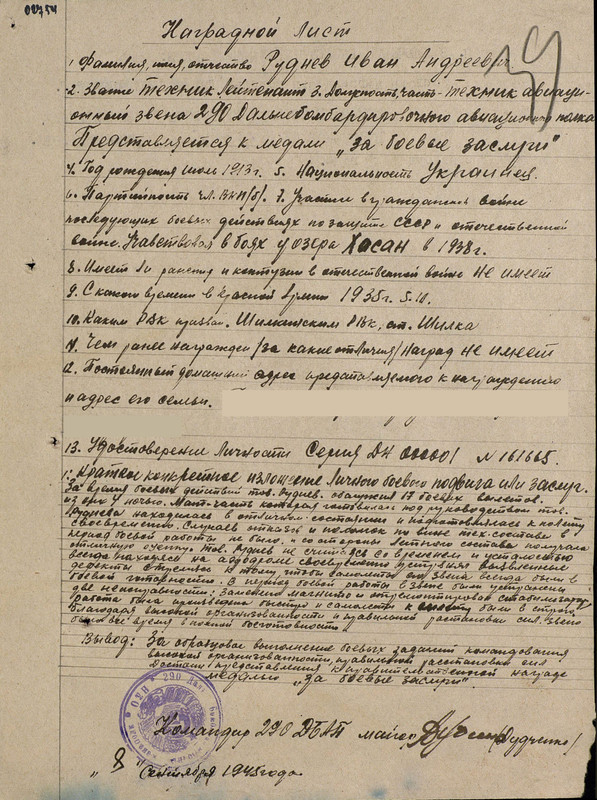 02754
Наградной Лист
1. Фамилия, имя, отчество Руднев Иван Андреевич
2. Звание Техник Лейтенант 3. Должность, часть - Техник авиаци-
онный звена 290 Дальнебомбардировочного авиационного полка
Представляется к медали „За боевые заслуги"
4. Год рождения 1913 г. 5. Национальность Украинец.
6. Партийность чл. ВКП(б). 7. Участие в гражданской войне
последующих боевых действиях по защите СССР и отечественной
войне. Участвовал в боях у озера Хасан в 1938 г.
8. Имеет ли ранения и контузии в отечественной войне не имеет
9. С какого времени в Красной Армии 1935 г. 5.10.
10. Каким РВК призван. Шилкинским РВК, ст. Шилка
11. Чем ранее награжден /за какие отличия/ Наград не имеет
12. Постоянный домашний адрес представляемого к награждению
и адрес его семьи.
13. Удостоверение Личности Серия ДН 00001 № 161665.
1. Краткое конкретное изложение личного боевого подвига или заслуг.
За время боевых действий тов. Руднев. обслужил 17 боевых вылетов.
из них 4 ночью. Мат-часть которая готовилась под руководством тов.
Руднева находилась в отличном состоянии и подготовлялась к полету
своевременно. Случаев отказов и поломок по вине тех. состава в
период боевой работы не было, и со стороны летного состава получала
отличную оценку. Тов. Руднев не считаясь со временем и усталостью
всегда находился на аэродроме своевременно устранял выявленные
дефекты стремясь к тому чтобы самолеты его звена всегда были в
боевой готовности. В период боевой работы в звене были устранены
две неисправности: заменено магнето и отремонтирован стабилизатор
работа была произведена быстро и самолеты к были в строю.
Благодаря высокой организованности и правильной расстановки сил. Звено
было все время в полной боеготовности
Вывод: За образцовое выполнение боевых заданий командования
высокой организованности, правильной расстановки сил
Достоин представления к правительственной награде
медалью „За боевые заслуги"
Командир 290 ДБАП майор /Дудченко/
„8" Сентября 1945 года.